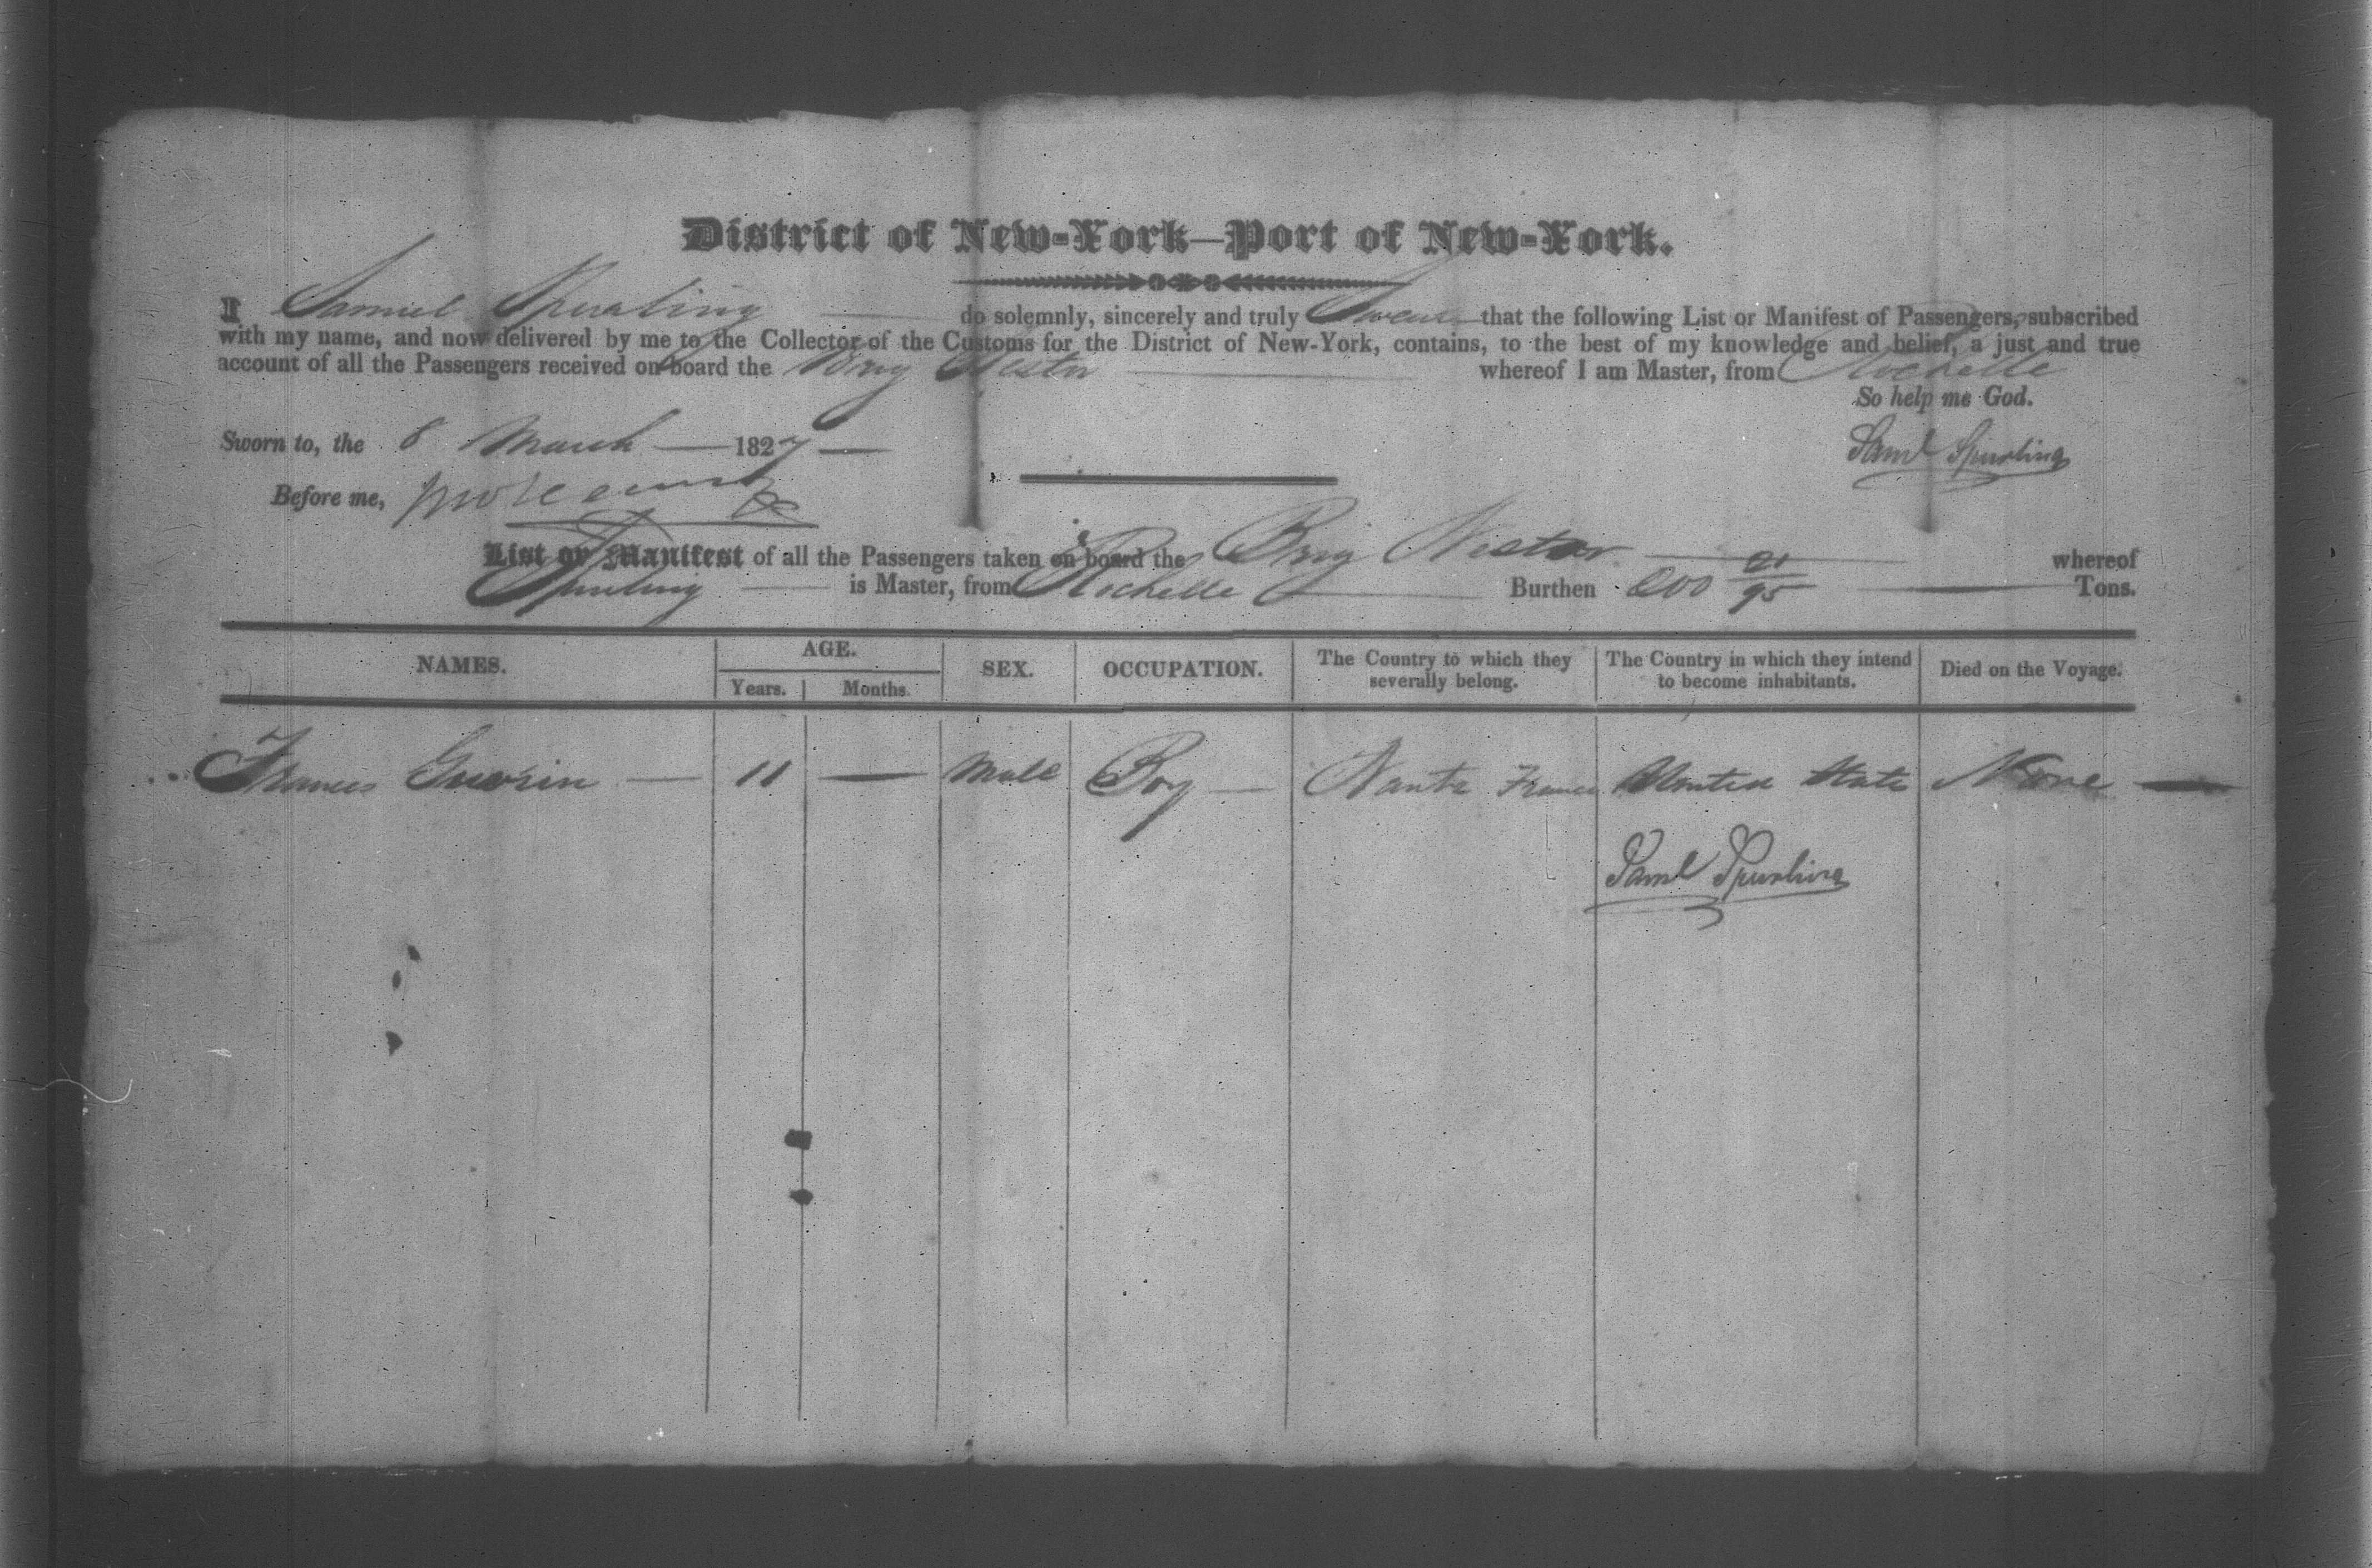 District of New-York—Port of New-York.
I Samuel Spurling do solemnly, sincerely and truly Swear that the following List or Manifest of Passengers, subscribed
with my name, and now delivered by me to the Collector of the Customs for the District of New-York, contains, to the best of my knowledge and belief, a just and true
account of all the Passengers received on board the Brig Nestor whereof I am Master, from Rochelle
So help me God.
Sworn to, the 8 March 1827
Saml Spurling
Before me,
List or Manifest of all the Passengers taken on board the Brig Nestor whereof
Spurling is Master, from Rochelle Burthen 200 21/95 Tons.
NAMES. AGE. SEX. OCCUPATION. The Country to which they severally belong. The Country in which they intend to become inhabitants. Died on the Voyage.
Years. Months.
Frances Guerin — 11 — Male Boy — Nantz France United State None —
Saml Spurling